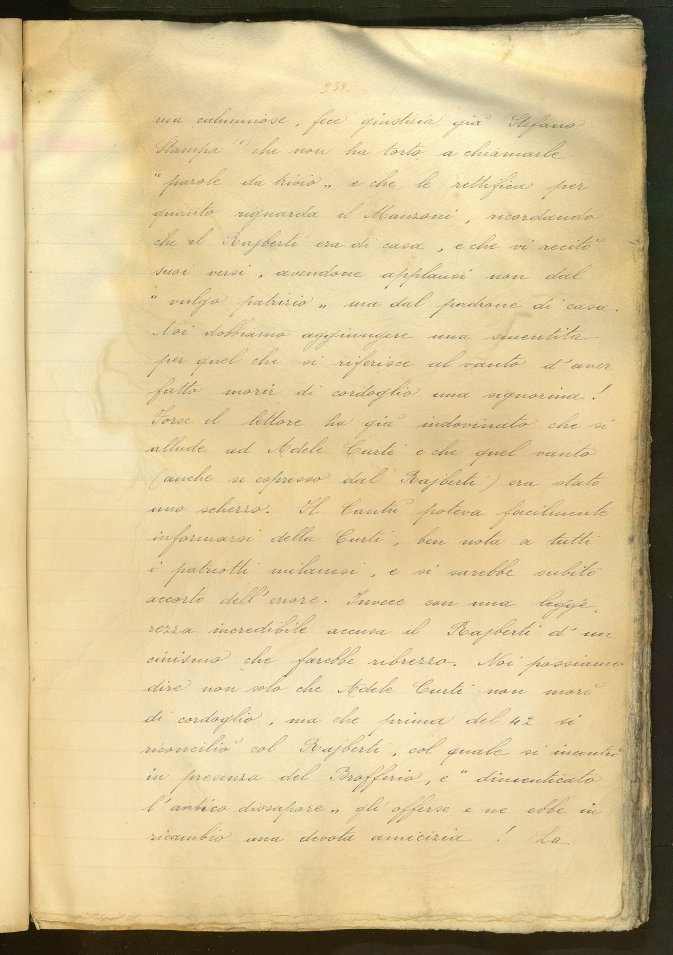 289.
ma calunniose, fece giustizia già Stefano
Stampa (1) che non ha torto a chiamarle
"parole da trivio„ e che le rettifica per
quanto riguarda il Manzoni, ricordando
che il Rajberti era di casa, e che vi recitò
suoi versi, avendone applausi non dal
"vulgo patrizio„ ma dal padrone di casa.
Noi dobbiamo aggiungere una smentita
per quel che si riferisce al vanto d'aver
fatto morir di cordoglio una signorina!
Forse il lettore ha già indovinato che si
allude ad Adele Curti e che quel vanto
(anche se espresso dal Rajberti) era stato
uno scherzo. Il Cantù poteva facilmente
informarsi della Curti, ben nota a tutti
i patriotti milanesi, e si sarebbe subito
accorto dell'errore. Invece con una legge-
rezza incredibile accusa il Rajberti d'un
cinismo che farebbe ribrezzo. Noi possiamo
dire non solo che Adele Curti non morì
di cordoglio, ma che prima del 42 si
riconciliò col Rajberti, col quale si incontrò
in presenza del Brofferio, e "dimenticato
l'antico dissapore„ gli offerse e ne ebbe in
ricambio una devota amicizia! La